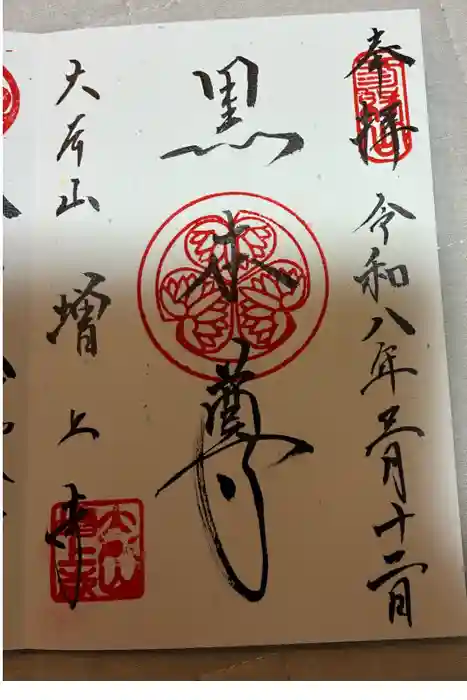 奉拝 令和八年五月十二日
黒本尊
大本山 増上寺